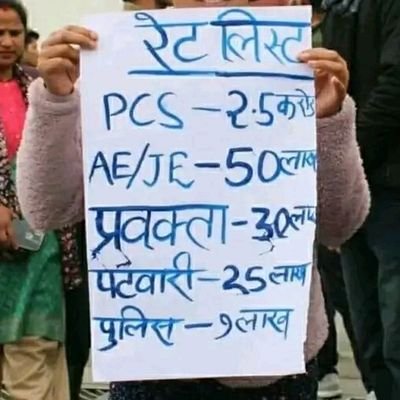 रेट लिस्ट
PCS – 2.5 करोड़
AE/JE – 50 लाख
प्रवक्ता – 30 लाख
पटवारी – 25 लाख
पुलिस – 9 लाख